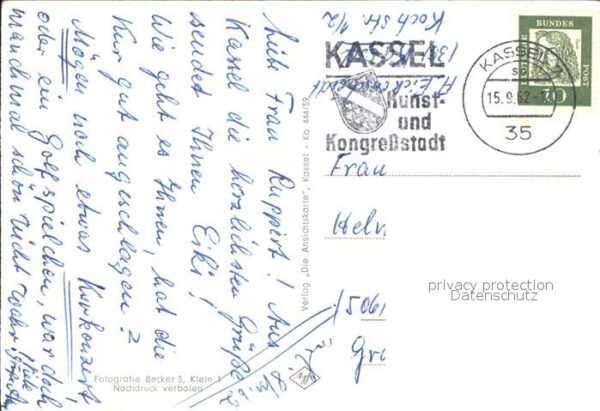 Liebe Frau Ruppert! Aus
Kassel die herzlichsten Grüße
sendet Ihnen Eiki!
Wie geht es Ihnen, hat die
Kur gut angeschlagen?
Mögen noch etwas Kurkonzert
oder ein Golfspielchen, war doch
manchmal schön nicht wahr!
Verlag „Die Ansichtskarte", Kassel - Ka 444/59
Fotografie Becker 3, Klein 1
Nachdruck verboten
KASSEL
Kunst-
und
Kongreßstadt
KASSEL
15.9.62-1
35
DEUTSCHE
BUNDES
POST
Kochstr. 1/2
Frau
Helv
(506
Gr
privacy protection
Datenschutz